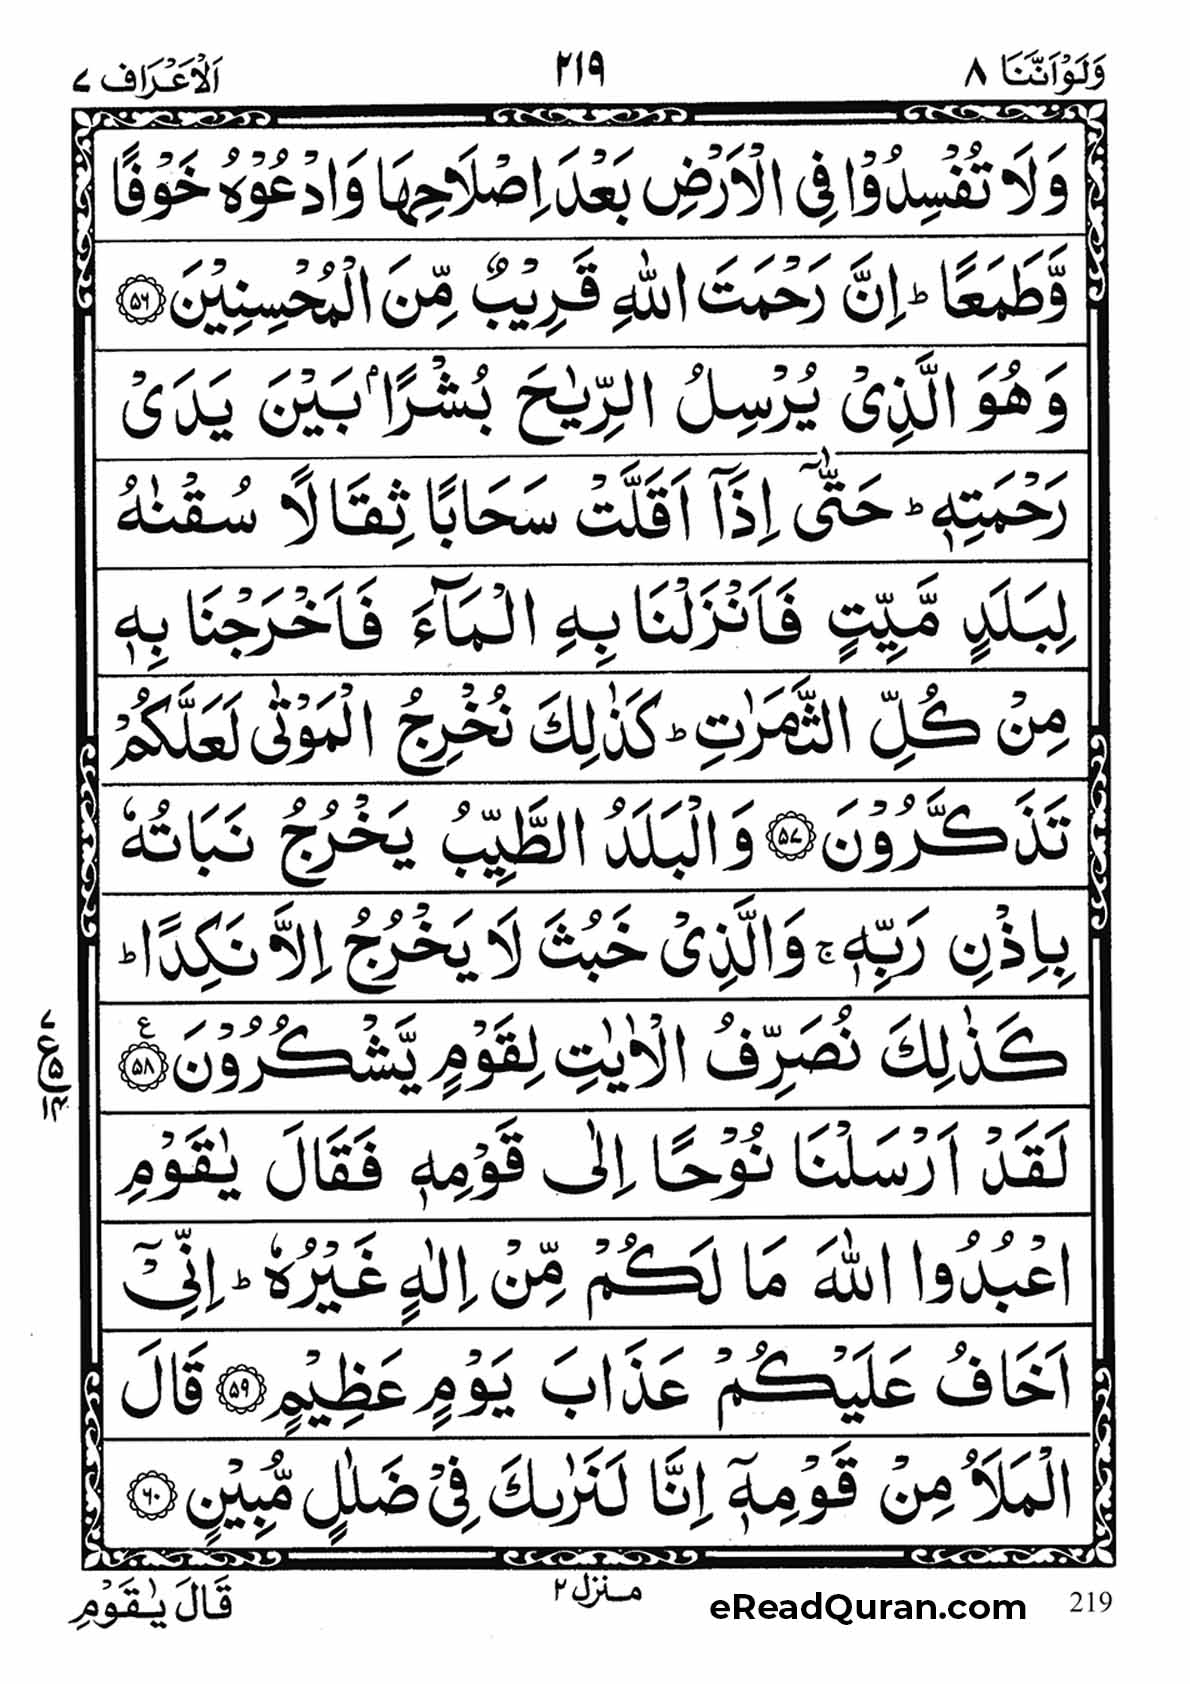 وَلَوْاَنَّنَا ٨
٢١٩
اَلْاَعْرَاف ٧
وَلَا تُفْسِدُوْا فِی الْاَرْضِ بَعْدَ اِصْلَاحِهَا وَادْعُوْهُ خَوْفًا
وَّطَمَعًا ؕ اِنَّ رَحْمَتَ اللّٰهِ قَرِیْبٌ مِّنَ الْمُحْسِنِیْنَ ﴿۵۶﴾
وَهُوَ الَّذِیْ یُرْسِلُ الرِّیٰحَ بُشْرًۢا بَیْنَ یَدَیْ
رَحْمَتِهٖ ؕ حَتّٰۤی اِذَاۤ اَقَلَّتْ سَحَابًا ثِقَالًا سُقْنٰهُ
لِبَلَدٍ مَّیِّتٍ فَاَنْزَلْنَا بِهِ الْمَآءَ فَاَخْرَجْنَا بِهٖ
مِنْ كُلِّ الثَّمَرٰتِ ؕ كَذٰلِكَ نُخْرِجُ الْمَوْتٰی لَعَلَّكُمْ
تَذَكَّرُوْنَ ﴿۵۷﴾ وَالْبَلَدُ الطَّیِّبُ یَخْرُجُ نَبَاتُهٗ
بِاِذْنِ رَبِّهٖ ۚ وَالَّذِیْ خَبُثَ لَا یَخْرُجُ اِلَّا نَكِدًا ؕ
كَذٰلِكَ نُصَرِّفُ الْاٰیٰتِ لِقَوْمٍ یَّشْكُرُوْنَ ﴿۵۸﴾ ع
٧ ع ۵ ١٤
لَقَدْ اَرْسَلْنَا نُوْحًا اِلٰی قَوْمِهٖ فَقَالَ یٰقَوْمِ
اعْبُدُوا اللّٰهَ مَا لَكُمْ مِّنْ اِلٰهٍ غَیْرُهٗ ؕ اِنِّیْۤ
اَخَافُ عَلَیْكُمْ عَذَابَ یَوْمٍ عَظِیْمٍ ﴿۵۹﴾ قَالَ
الْمَلَاُ مِنْ قَوْمِهٖۤ اِنَّا لَنَرٰىكَ فِیْ ضَلٰلٍ مُّبِیْنٍ ﴿۶۰﴾
قَالَ یٰقَوْمِ
منزل ٢
eReadQuran.com
219